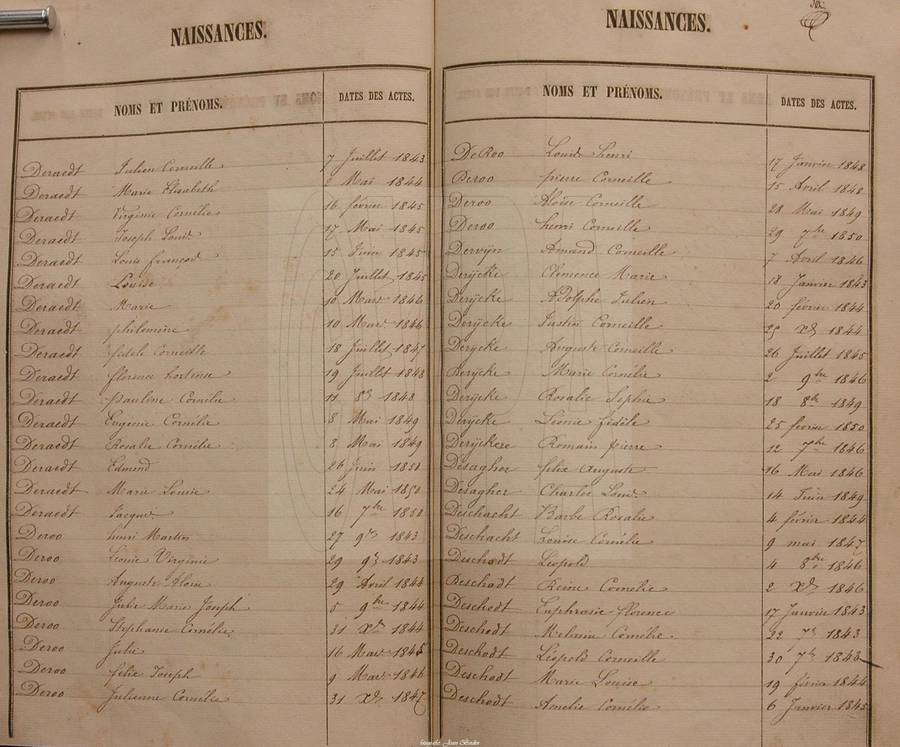 NAISSANCES.
NOMS ET PRÉNOMS. DATES DES ACTES.
Deraedt Julien Corneille 7 Juillet 1843
Deraedt Marie Elisabeth 2 Mai 1844
Deraedt Virginie Cornélie 16 février 1845
Deraedt Joseph Louis 17 Mai 1845
Deraedt Louis françois 15 Juin 1845
Deraedt Louise 20 Juillet 1845
Deraedt Marie 10 Mars 1846
Deraedt philomène 10 Mars 1846
Deraedt fidele Corneille 18 Juillet 1847
Deraedt florence hortense 19 Juillet 1848
Deraedt Pauline Cornélie 11 1848
Deraedt Eugenie Cornélie 8 Mai 1849
Deraedt Rosalie Cornélie 8 Mai 1849
Deraedt Edmond 26 Juin
Deraedt Marie Louise 24 Mai 1850
Deraedt Jacques 16 7bre
Deroo henri Martin 27 1843
Deroo Léonie Virginie 29 1843
Deroo Auguste Aloise 29 Avril 1844
Deroo Julie Marie Joseph 5 9bre 1844
Deroo Stéphanie Cornélie 31 Xbre 1844
Deroo Julie 16 Mars
Deroo félix Joseph 9 Mars 1846
Deroo Julienne Cornélie 31 Xbre 1847
NAISSANCES.
NOMS ET PRÉNOMS. DATES DES ACTES.
DeRoo Louis henri 17 Janvier 1848
Deroo pierre Corneille 15 Avril 1848
Deroo Aloïse Corneille 28 Mai 1849
Deroo henri Corneille 29 7bre 1850
Derwyn Amand Corneille 7 Avril 1846
Derÿcke Clémence Marie 18 Janvier 1843
Derÿcke Adolphe Julien 20 février 1844
Derÿcke Justin Corneille 25 Xbre 1844
Derÿcke Auguste Corneille 26 Juillet 1845
Derÿcke Marie Cornélie 2 9bre 1846
Derÿcke Rosalie Sophie 18 8bre 1849
Derÿcke Léonie fidèle 25 fevrier 1850
Derÿckere Romain pierre 12 7bre 1846
Desagher félix Auguste 16 Mai 1846
Desagher Charles Louis 14 Juin 1849
Deschacht Barbe Rosalie 4 février 1844
Deschacht Louise Cornélie 9 mai 1847
Deschodt Léopold 4 8bre 1846
Deschodt Reine Cornélie 2 Xbre 1846
Deschodt Euphrasie florence 17 Janvier 1843
Deschodt Melanie Cornélie 22 7bre 1843
Deschodt Léopold Corneille 30 7bre 1843
Deschodt Marie Louise 19 février 1844
Deschodt Amelie Cornélie 6 Janvier 1845